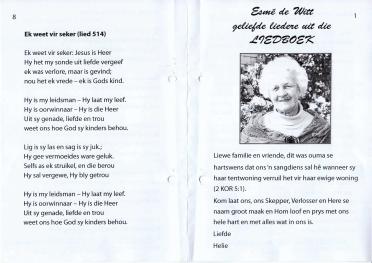 8
Ek weet vir seker (lied 514)
Ek weet vir seker: Jesus is Heer
Hy het my sonde uit liefde vergeef
ek was verlore, maar is gevind;
nou het ek vrede – ek is Gods kind.
Hy is my leidsman – Hy laat my leef.
Hy is oorwinnaar – Hy is die Heer
Uit sy genade, liefde en trou
weet ons hoe God sy kinders behou.
Lig is sy las en sag is sy juk,;
Hy gee vermoeides ware geluk.
Selfs as ek struikel, en die berou
Hy sal vergewe, Hy bly getrou
Hy is my leidsman – Hy laat my leef.
Hy is oorwinnaar – Hy is die Heer
Uit sy genade, liefde en trou
weet ons hoe God sy kinders behou.
1
Esmé de Witt
geliefde liedere uit die
LIEDBOEK
Liewe familie en vriende, dit was ouma se
hartswens dat ons 'n sangdiens sal hê wanneer sy
haar tentwoning verruil het vir haar ewige woning
(2 KOR 5:1).
Kom laat ons, ons Skepper, Verlosser en Here se
naam groot maak en Hom loof en prys met ons
hele hart en met alles wat in ons is.
Liefde
Helie